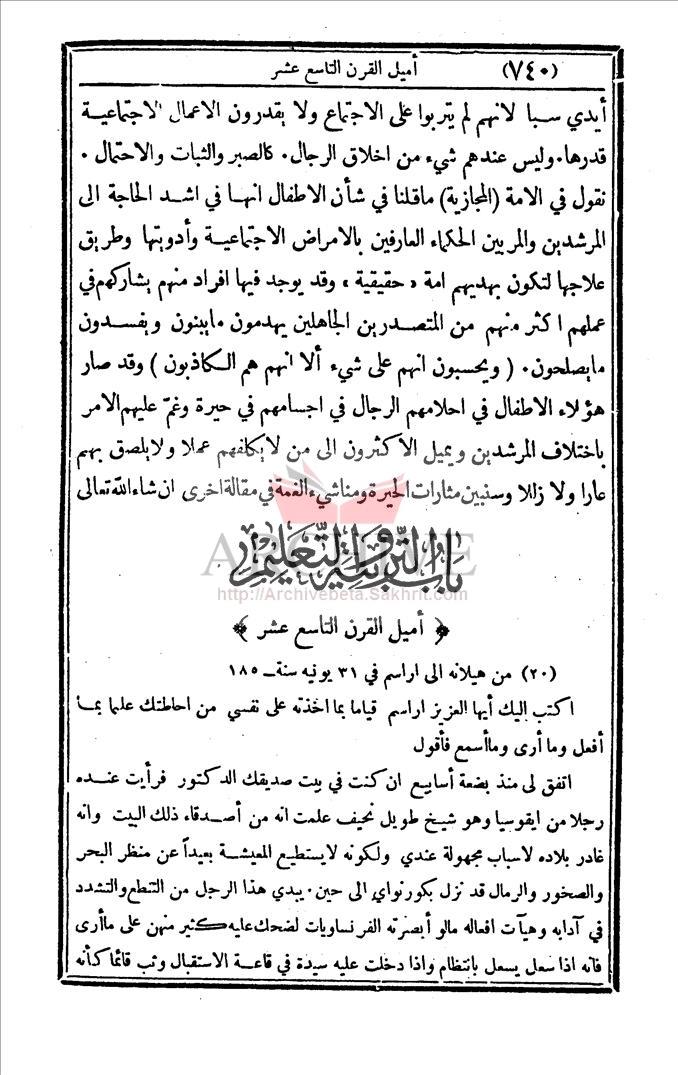 (٧٤٠) أميل القرن التاسع عشر
أيدي سبا لانهم لم يتربوا على الاجتماع ولا يقدرون الاعمال الاجتماعية
قدرها. وليس عندهم شيء من اخلاق الرجال. كالصبر والثبات والاحتمال.
نقول في الامة (المجازية) ماقلنا في شأن الاطفال انها في اشد الحاجة الى
المرشدين والمربين الحكماء العارفين بالامراض الاجتماعية وأدويتها وطريق
علاجها لتكون بهديهم امة «حقيقية» وقد يوجد فيها افراد منهم يشاركهم في
عملهم اكثر منهم من المتصدرين الجاهلين يهدمون مايبنون ويفسدون
مايصلحون. (ويحسبون انهم على شيء ألا انهم هم الكاذبون) وقد صار
هؤلاء الاطفال في احلامهم الرجال في اجسامهم في حيرة وغمّ عليهم الامر
باختلاف المرشدين ويميل الاكثرون الى من لايكلفهم عملا ولايلصق بهم
عارا ولا زللا وسنبين مثارات الحيرة ومناشيء الغمة في مقالة اخرى ان شاء الله تعالى
باب التربية والتعليم
ARCHIVE
http://Archivebeta.Sakhrit.com
﴿ أميل القرن التاسع عشر ﴾
(٢٠) من هيلانه الى اراسم في ٣١ يونيه سنة ـ ١٨٥
اكتب اليك أيها العزيز اراسم قياما بما اخذته على نفسي من احاطتك علما بما
أفعل وما أرى وما أسمع فأقول
اتفق لى منذ بضعة أسابيع ان كنت في بيت صديقك الدكتور فرأيت عنده
رجلا من ايقوسيا وهو شيخ طويل نحيف علمت انه من أصدقاء ذلك البيت وانه
غادر بلاده لاسباب مجهولة عندي ولكونه لايستطيع المعيشة بعيداً عن منظر البحر
والصخور والرمال قد نزل بكورنواي الى حين. يبدي هذا الرجل من التنطع والتشدد
في آدابه وهيآت افعاله مالو أبصرته الفرنساويات لضحك عليه كثير منهن على ما أرى
فانه اذا سعل يسعل بانتظام واذا دخلت عليه سيدة في قاعة الاستقبال وثب قائما كأنه